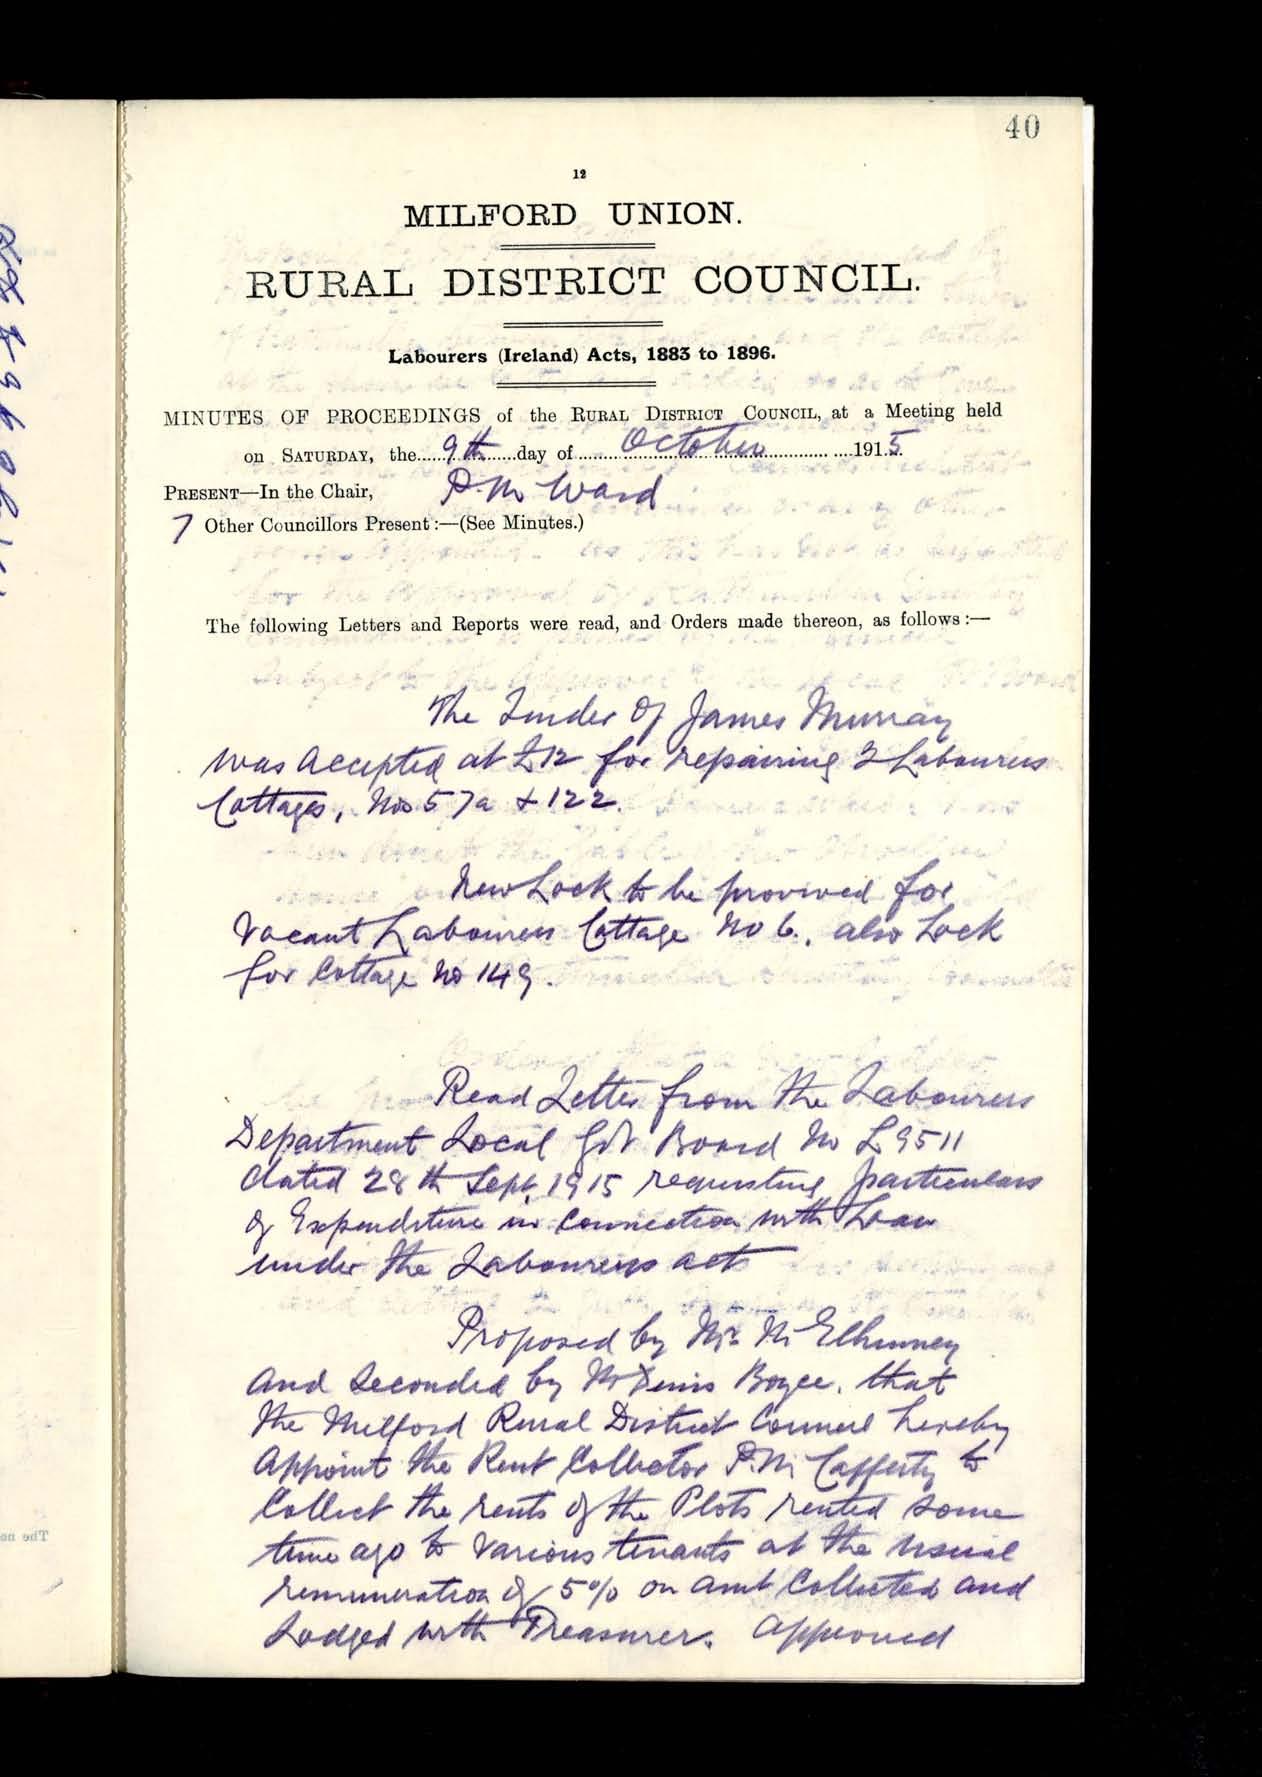 40
12
MILFORD UNION.
RURAL DISTRICT COUNCIL.
Labourers (Ireland) Acts, 1883 to 1896.
MINUTES OF PROCEEDINGS of the RURAL DISTRICT COUNCIL, at a Meeting held
on SATURDAY, the 9th day of October 1915.
PRESENT—In the Chair, P. Mc Ward
7 Other Councillors Present:—(See Minutes.)
The following Letters and Reports were read, and Orders made thereon, as follows:—
The Tender of James Murray
was accepted at £12 for repairing 2 Labourers
Cottages, Nos 57a + 122.
New Lock to be provived for
Vacant Labourers Cottage No 6., also Lock
for Cottage No 149.
Read Letter from the Labourers
Department Local Govt Board No L9511
dated 28th Sept. 1915 requesting particulars
of Expenditure in connection with Loan
under the Labourers acts
Proposed by Mr McElhinney
and Seconded by Mr Denis Boyce, that
the Milford Rural District Council hereby
Appoint the Rent Collector P. Mc Cafferty to
Collect the rents of the Plots rented some
time ago to various tenants at the usual
remuneration of 5% on amt Collected and
Lodged with Treasurer. Approved